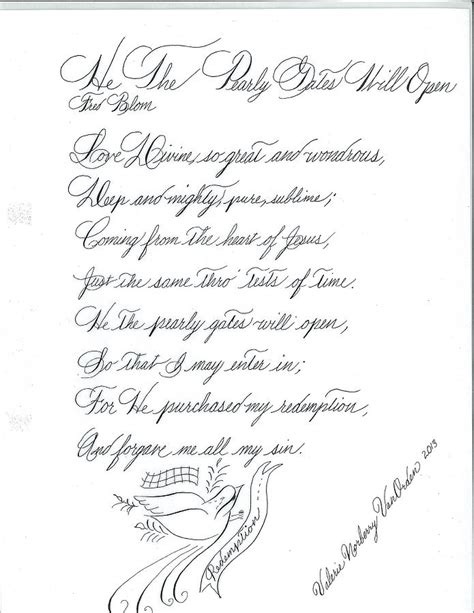 He The Pearly Gates Will Open
Fred Blom
Love Divine, so great and wondrous,
Deep and mighty, pure, sublime;
Coming from the heart of Jesus,
Just the same thro' tests of time.
He the pearly gates will open,
So that I may enter in;
For He purchased my redemption,
And forgave me all my sin.
Redemption
Valerie Norberry VanOrden 2013